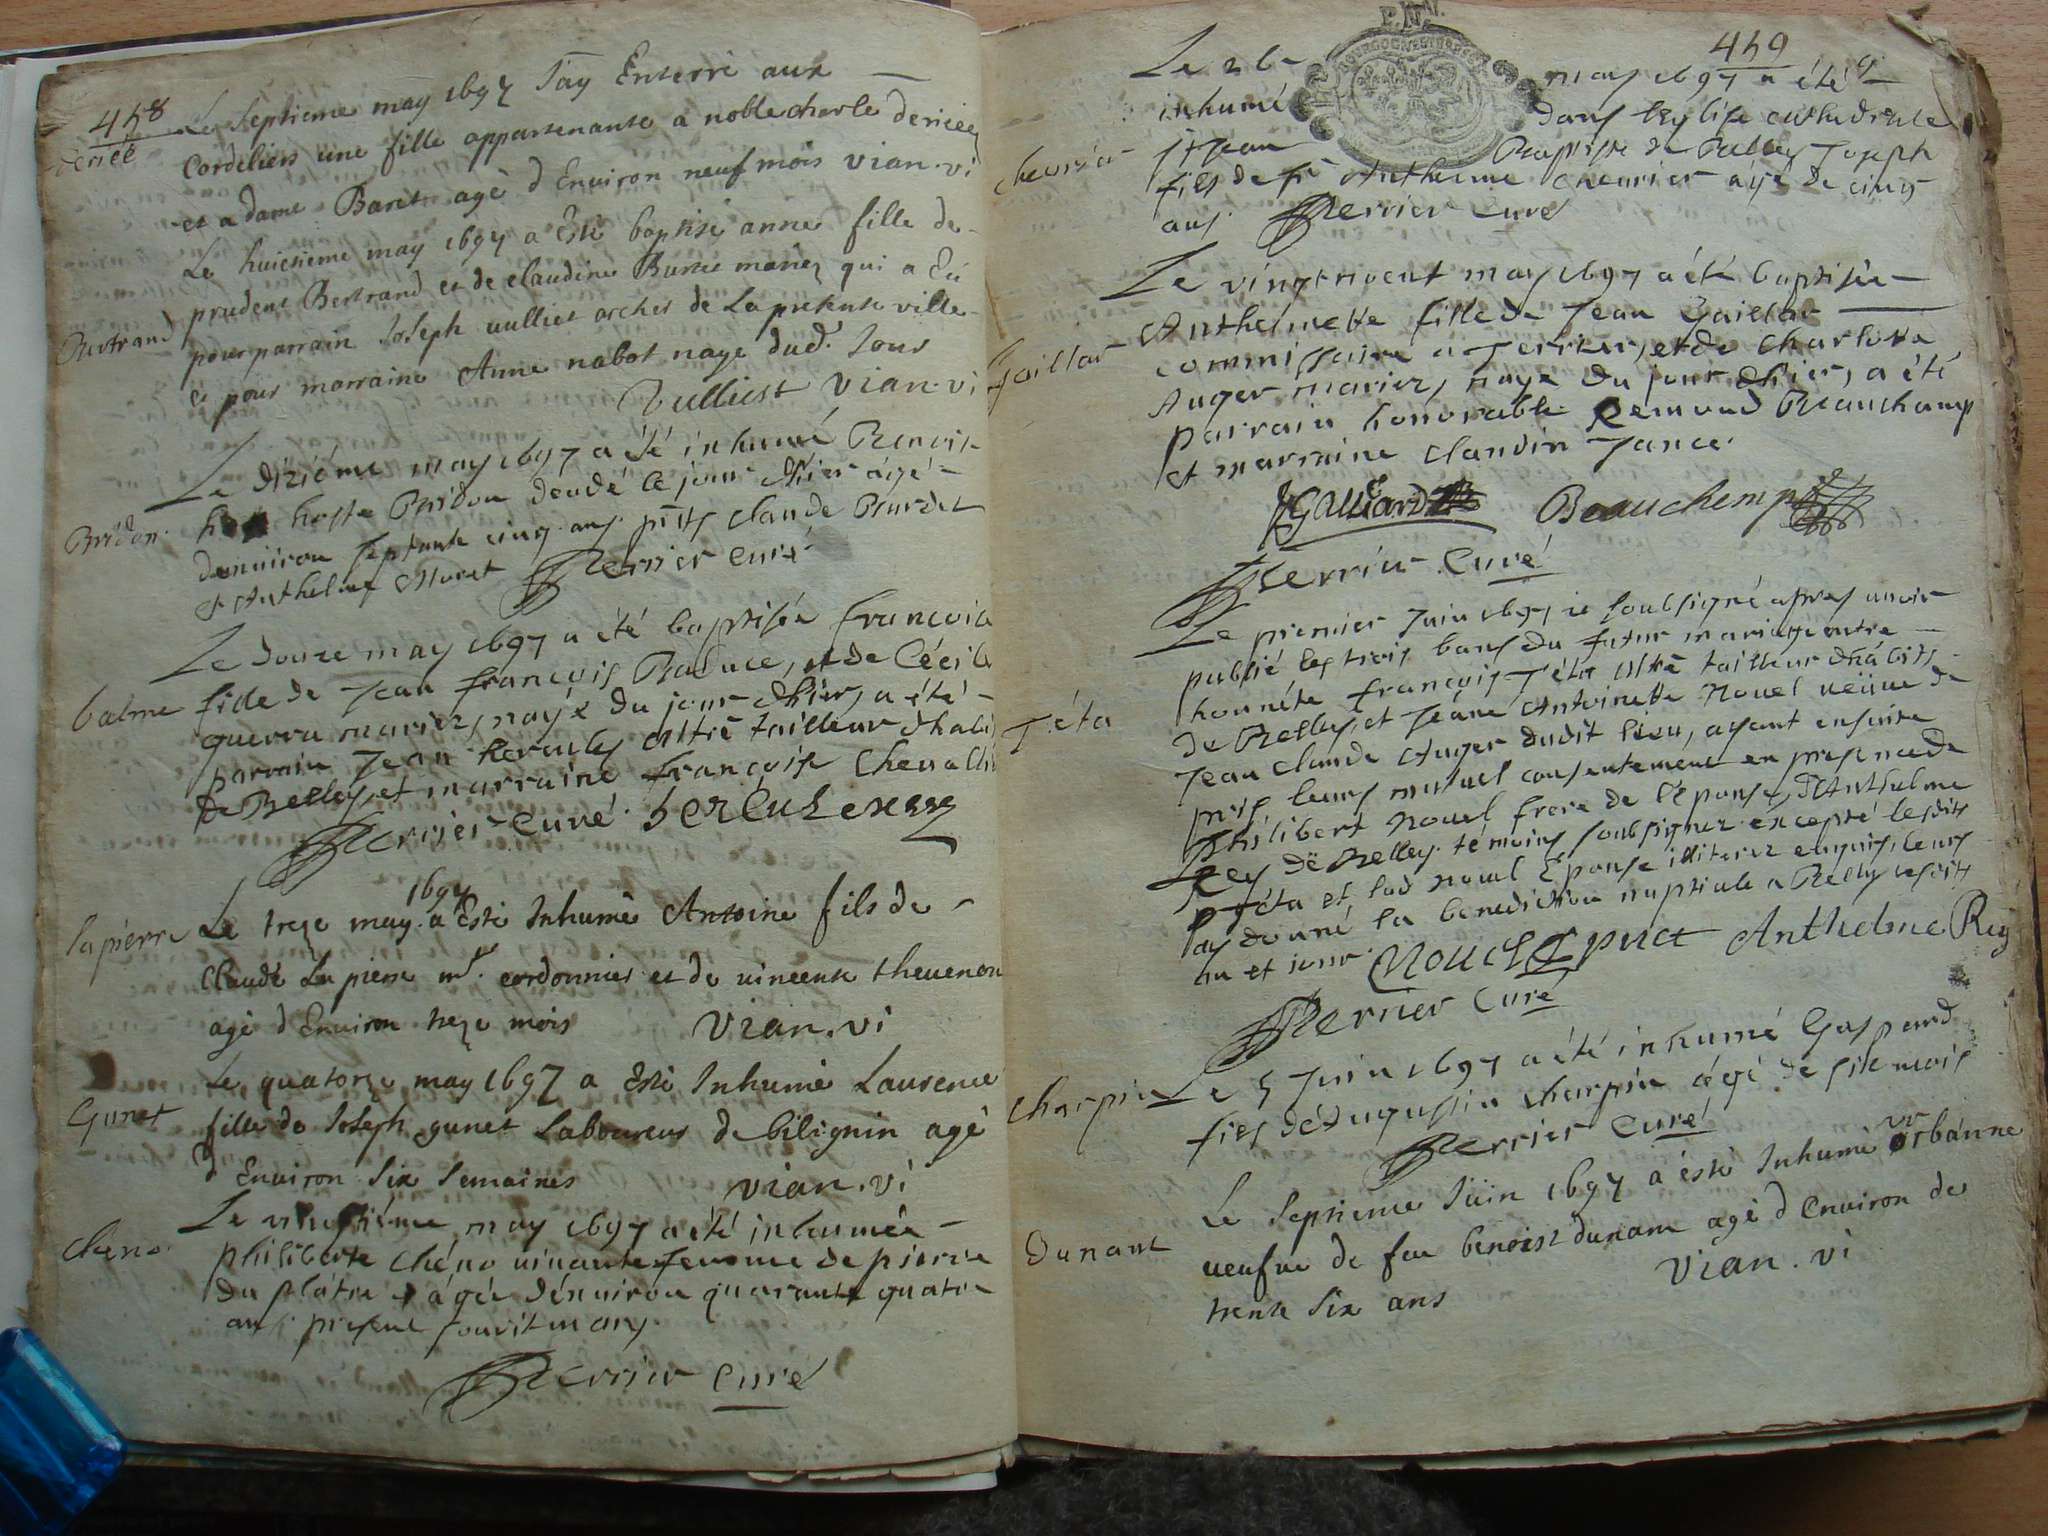 458
Le Septieme may 1697 Jay Enterré aux
deriée
Cordeliers une fille appartenante a noble charle deriée
et a dame Baret agè d Environ neuf mois Vian. vi
Le huictieme may 1697 a Estè baptisè anne fille de
prudent Bertrand et de claudine mariez qui a Eü
Bertrand
pour parrain Joseph vulliet archer de La presente ville
& pour marraine Anne nabot naye dud. Jour
Vulliet Vian. vi
Le diziéme may 1697 a été inhumé Benoist
Bridon.
hoste Bridon decedé le jour d'hier âgé
denuiron septante cinq ans. pnts claude Bourdet
et Anthelme Moret Perrier curé
Le douze may 1697 a été baptisée françoise
balme
fille de Jean françois Balme, et de Cécile
guerra mariez, nayé du jour d'hier, a été
parrain Jean hercules Mtre tailleur d'habis
de Belley, et marraine françoise Cheuallie
Perrier Curé. hercules
1697
lapierre
Le treze may a Estè Inhumè Antoine fils de
Claude Lapierre mr. cordonnier et de vincente theuenon
agè d Environ treze mois Vian. vi
Le quatorze may 1697 a Estè Inhumè Laurence
Gunet
fille de Joseph gunet Laboureur de bilignin agè
d Environ Six Semaines Vian. vi
Le vingtiéme may 1697 a été inhumée
Chéno.
philiberte chéno viuante femme de pierre
du plâtre âgée dénuirou quarante quatre
ans. présent sondit mary.
Perrier curé
459
Le 26 may 1697 a été
inhumé dans l'eglise cathedrale
cheurier
St Jean Baptiste de Belley Joseph
fils de Sr Anthelme cheurier âgé de cinq
ans. Perrier Curé
Le vingtneuf may 1697 a été baptisée
Anthelmette fille de Jean Gaillar
Gaillar
commissaire a Terrier, et de Charlotte
Auger mariez, naye du jour d'hier, a été
parrain honorable Remond Beauchamp
et marraine claudin Jance.
JGalliard Beauchemp
Perrier Curé
Le premier Juin 1697 ie soubsigné apres auoir
publié les trois bans du futur mariage entre
honnéte françois Téta Mtre tailleur d'habits
Téta
de Belley, et Jeane Antoinette Nouel veüue de
Jean claude Auger dudit lieu, ayant ensuite
pris leurs mutuel consentement en presence de
philibert Nouel frere de l'épouse, d'Anthelme
Rey de Belley témoins soubsignez excepté lesdits
Téta et lad Nouel Epouse illiterez enquis, leurs
ay donné la benediction nuptiale a Belley lesdits
an et jour. Nouel Anthelme Rey
Perrier Curé
Le 5 Juin 1697 a été inhumé Gaspard
charpin
fils d'Augustin charpin âgé de six mois
Perrier Curé
Le Septieme Jüin 1697 a éstè Inhumè vrbanne
Dunant
ueufue de feu benoist dunant agè d Environ de
trente Six ans Vian. vi